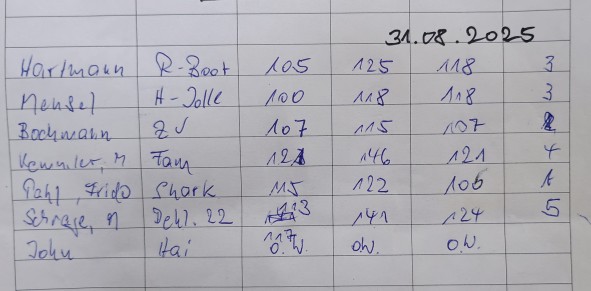 31.08.2025
Hartmann R-Boot 105 125 118 3
Mensel H-Jolle 100 118 118 3
Bochmann ZV 107 115 107 2
Kemmler, M Fam 121 146 121 4
Pahl, Frido Shark 115 122 106 1
Schrage, M Dehl. 22 113 141 124 5
117
John Hai o.W. o.W. o.W.